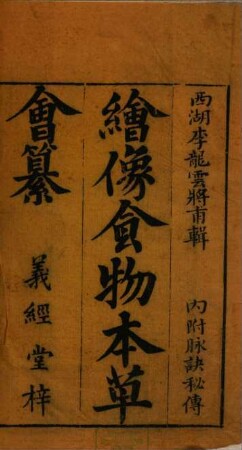 西湖李龍雲將甫輯 內附脉訣秘傳
繪像食物本草
會纂 義經堂梓